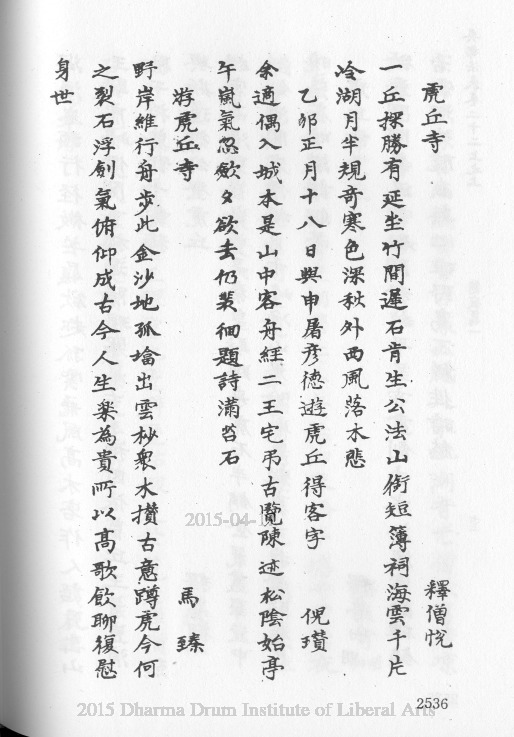 虎丘寺 釋僧悅
一丘探勝有延坐竹間遲石肯生公法山銜短簿祠海雲千片
冷湖月半規奇寒色深秋外西風落木悲
乙卯正月十八日與申屠彥德遊虎丘得客字 倪瓚
余適偶入城本是山中客舟經二王宅弔古覽陳迹松陰始亭
午嵐氣忽欲夕欲去仍裴徊題詩滿苔石
游虎丘寺 馬臻
野岸維行舟步此金沙地孤墖出雲杪衆木攢古意蹲虎今何
之裂石浮劍氣俯仰成古今人生樂為貴所以高歌飲聊復慰
身世
2536
2015-04-1
2015 Dharma Drum Institute of Liberal Arts